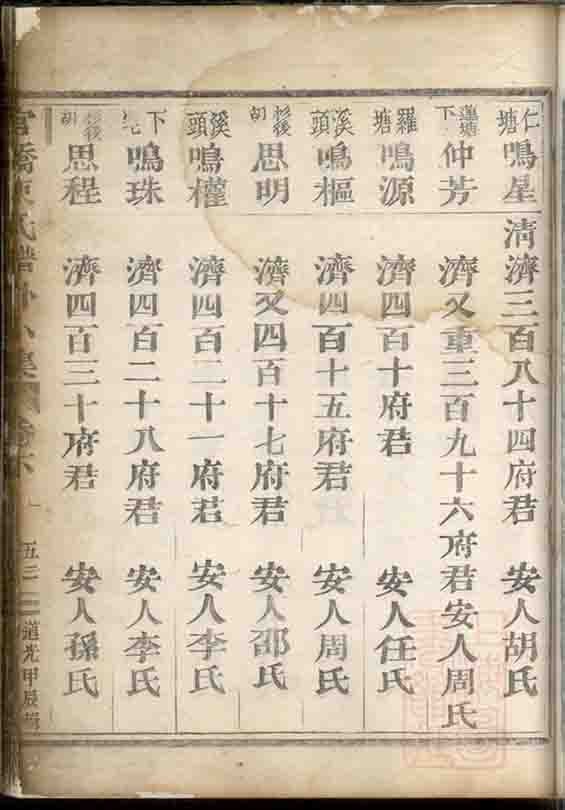 仁塘 鳴星 清濟三百八十四府君 安人胡氏
蓮塘下 仲芳 濟又重三百九十六府君安人周氏
羅塘 鳴源 濟四百十府君 安人任氏
溪頭 鳴樞 濟四百十五府君 安人周氏
杉後胡 思明 濟又四百十七府君 安人邵氏
溪頭 鳴權 濟四百二十一府君 安人李氏
下宅 鳴珠 濟四百二十八府君 安人李氏
杉後胡 思程 濟四百三十府君 安人孫氏
橋 氏譜 集 卷 五三 道光甲辰